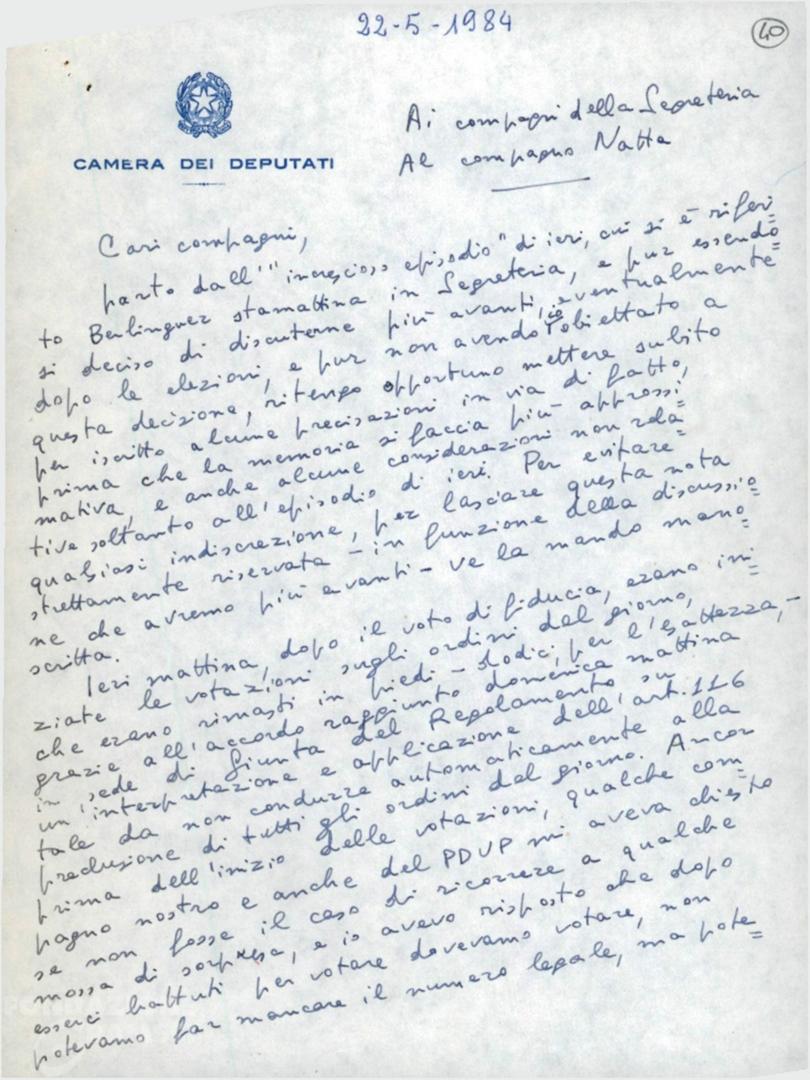 22-5-1984
40
CAMERA DEI DEPUTATI
Ai compagni della Segreteria
Al compagno Natta
Cari compagni,
parto dall'"increscioso episodio" di ieri, cui si è riferi=
to Berlinguer stamattina in Segreteria, e pur essendo=
si deciso di discuterne più avanti, eventualmente
dopo le elezioni, e pur non avendo io obiettato a
questa decisione, ritengo opportuno mettere subito
per iscritto alcune precisazioni in via di fatto,
prima che la memoria si faccia più approssi=
mativa, e anche alcune considerazioni non rela=
tive soltanto all'episodio di ieri. Per evitare
qualsiasi indiscrezione, per lasciare questa nota
strettamente riservata - in funzione della discussio=
ne che avremo più avanti - ve la mando mano=
scritta.
Ieri mattina, dopo il voto di fiducia, erano ini=
ziate le votazioni sugli ordini del giorno,
che erano rimasti in piedi - dodici, per l'esattezza, -
grazie all'accordo raggiunto domenica mattina
in sede di Giunta del Regolamento su
un'interpretazione e applicazione dell'art. 116
tale da non condurre automaticamente alla
preclusione di tutti gli ordini del giorno. Ancor
prima dell'inizio delle votazioni, qualche com=
pagno nostro e anche del PDUP mi aveva chiesto
se non fosse il caso di ricorrere a qualche
mossa di sorpresa, e io avevo risposto che dopo
esserci battuti per votare dovevamo votare, non
potevamo far mancare il numero legale, ma pote=